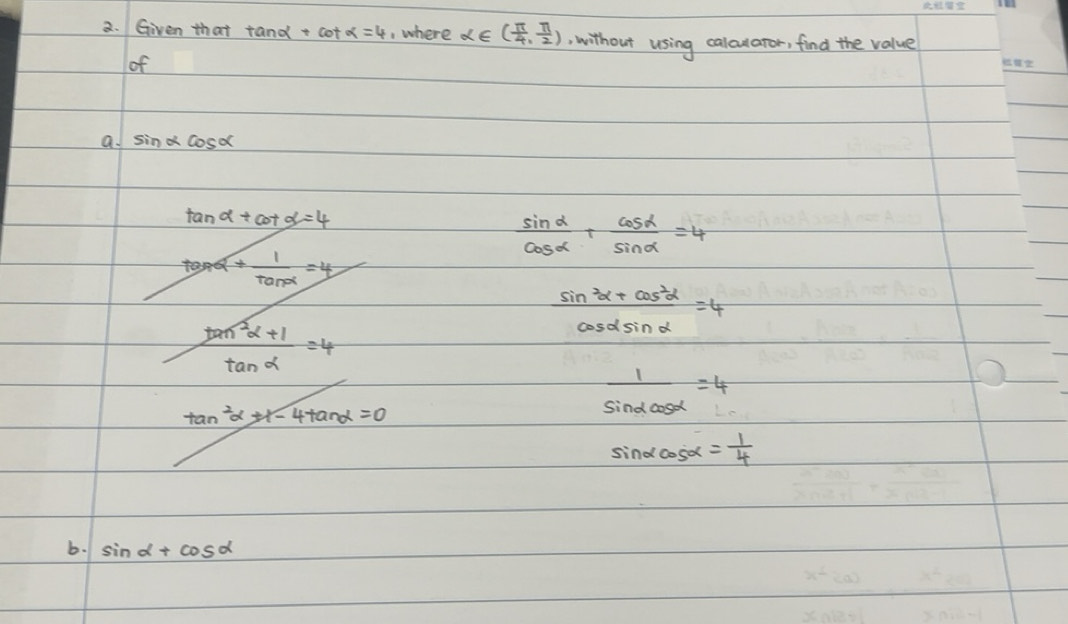 2. Given that tanα + cot α = 4, where α ∈ (π/4, π/2), without using calculator, find the value
of
a. sin α cosα
tan α + cot α = 4
tanα + 1/tanα = 4
tan²α + 1 / tan α = 4
tan²α + 1 - 4tanα = 0
sin α / cos α + cosα / sinα = 4
sin²α + cos²α / cosα sin α = 4
1 / sinα cosα = 4
sinα cosα = 1/4
b. sin α + cos α